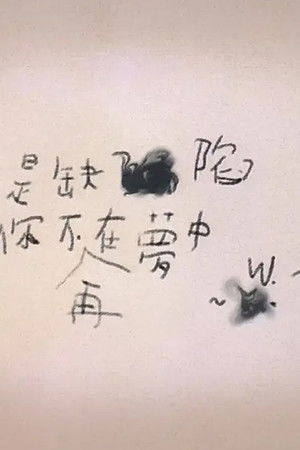 是缺陷
你不再在夢中
W.